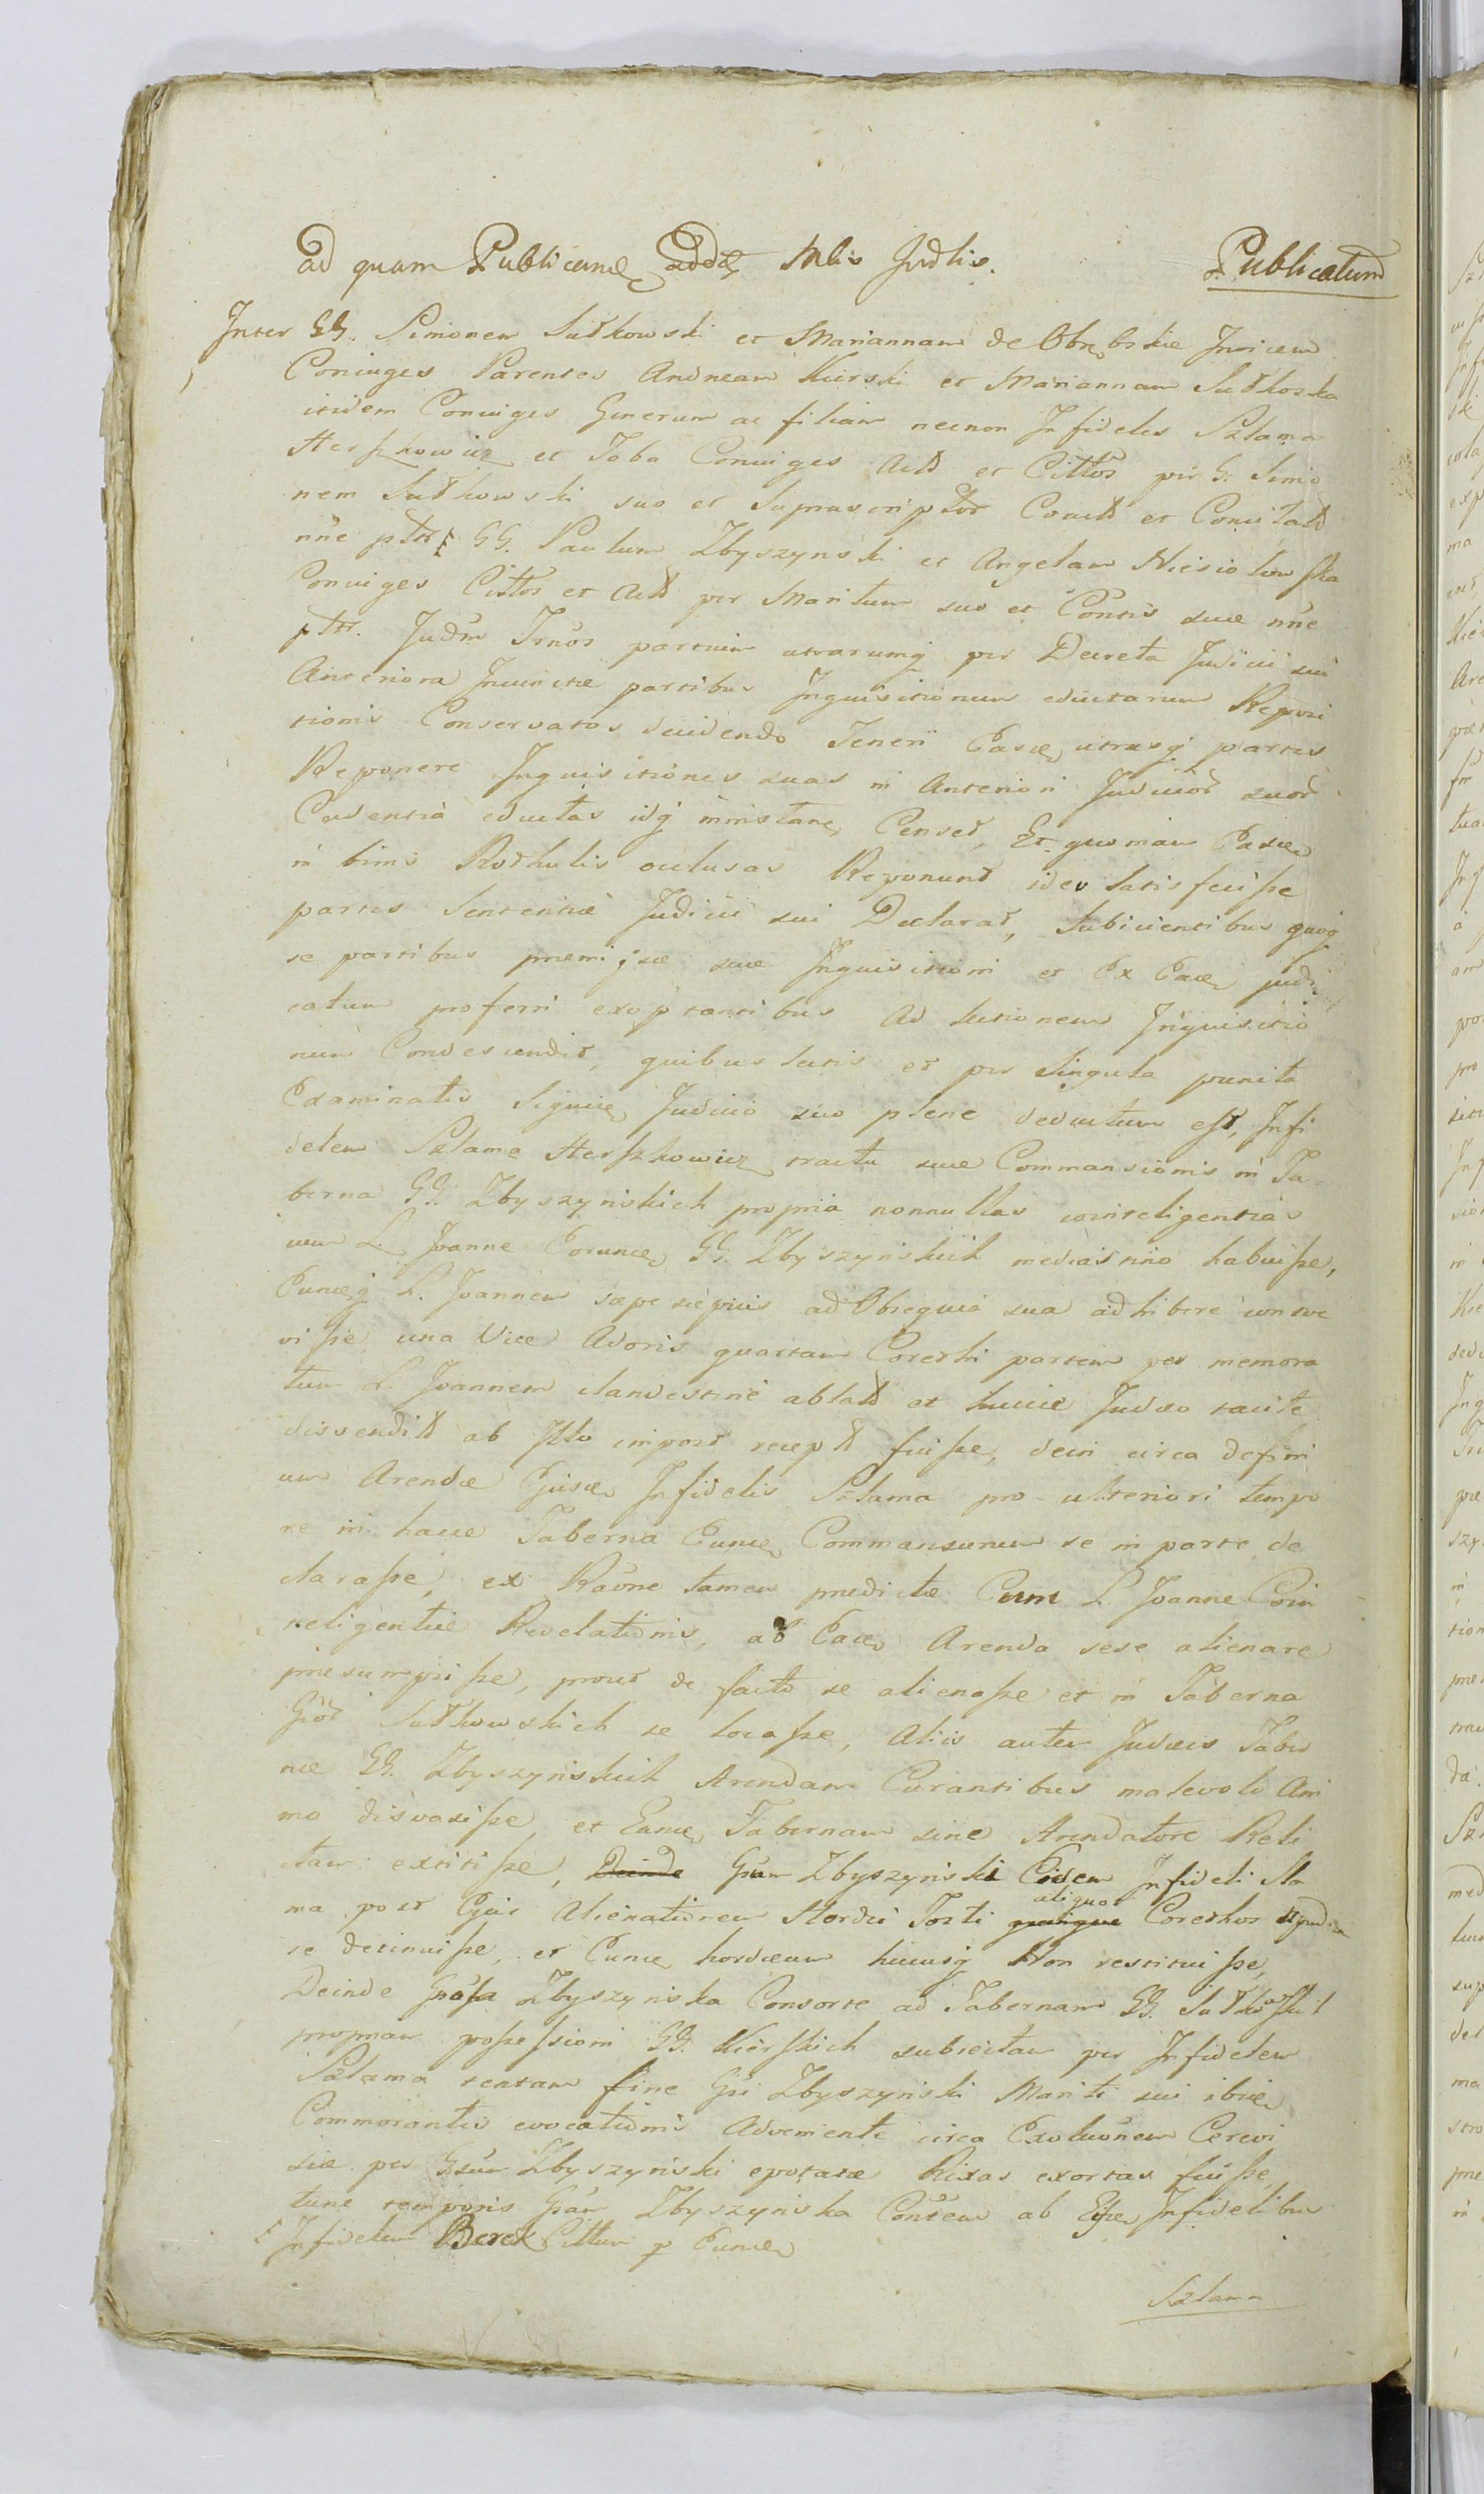 ad quam Publicand Mlis Judlis. Publicatum
Inter GG. Simonem Sutkowski et Mariannam de Obrębskie Invicem
Coniuges Parentes Andream Kierski et Mariannam Sutkoska
itidem Coniuges Generum ac filiam necnon Infideles Szlama
Herszkowicz et Toba Coniuges Actt et Cittos per G. Simo
nem Sutkowski suo et Suprascriptor Coactt et Concitatt
nne GG. Paulum Zbyszynski et Angelam Niesiolowska
Coniuges Cittos et Actt per Maritum suo et Contis suae nne
ptt. Judm Trnos partium utrarumq per Decreta Judicii sui
Anteriora Iniunctae partibus Inquisitionum eductarum Reposi
tionis Conservatos decidendo Teneri Easce utrasq partes
Reponere Inquisitiones suas in Anteriori Judicior suor
Cadentia eductas idq ininstanc Censet, Et quoniam Easce
in binis Rothulis oclusas Reponunt ideo Satisfecisse
partes Sententiae Judicii sui Declarat, Subiicientibus quoq
se partibus praemissae suae Inquisitioni et Ex Eace judi
catum proferri exoptantibus Ad lectionem Inquisitio
num Condescendit, quibus lectis et per Singula puncta
Examinatis Siquid Judicio suo plene deductum est, Infi
delem Szlama Herszkowicz tractu suae Commansionis in Ta
berna GG. Zbyszynskich propria nonnullas cointeligentias
cum L. Joanne GG. Zbyszynskich mediastino habuisse,
Euncq L. Joannem saepe saepius ad Obsequia sua adhibere consve
visse, una Vice Adoris quartam Coretki partem per memora
tum L. Joannem clandestine ablatt et huice Judaeo tacite
divendit ab Illo impost receptt fuisse, dein circa defini
um Arendae Ejusce Infidelis Szlama pro ulteriori tempo
re in hacce Taberna Eunce Commansurum se in parte de
clarasse, ex Raone tamen praedictae Cum L. Joanne Coin
teligentiae Revelationis, ab Eace Arenda sese alienare
praesumpsisse, prout de facto se alienasse et in Taberna
Gror Sutkowskich se locasse, Aliis autem Judaeis Taber
nae GG. Zbyszynskich Arendam Curantibus malevolo Ani
mo disvasisse, et Eance Tabernam sine Arendatore Reli
ctam extitisse, Deinde Grum Zbyszynski Eidem Infideli Szla
ma post Ejus Alienationem Hordei Tosti aliquot Coretkos apud
se detinuisse, et Eunce hordeum hucusq Non restituisse,
Deinde Zbyszynska Consorte ad Tabernam GG. Sutkowskich
propriam possessioni GG. Kierskich subiectam per Infidelem
Szlama tentam fine Gri Zbyszynski Mariti sui ibice
Commorantis evocationis Adveniente circa Exoluonem Cerevi
siae per Grum Zbyszynski epotatae Rixas exortas fuisse
tunc temporis Gram Zbyszynska Contem ab Infidelibus
Infidelem Berek Cittum p Eunce
Szlama